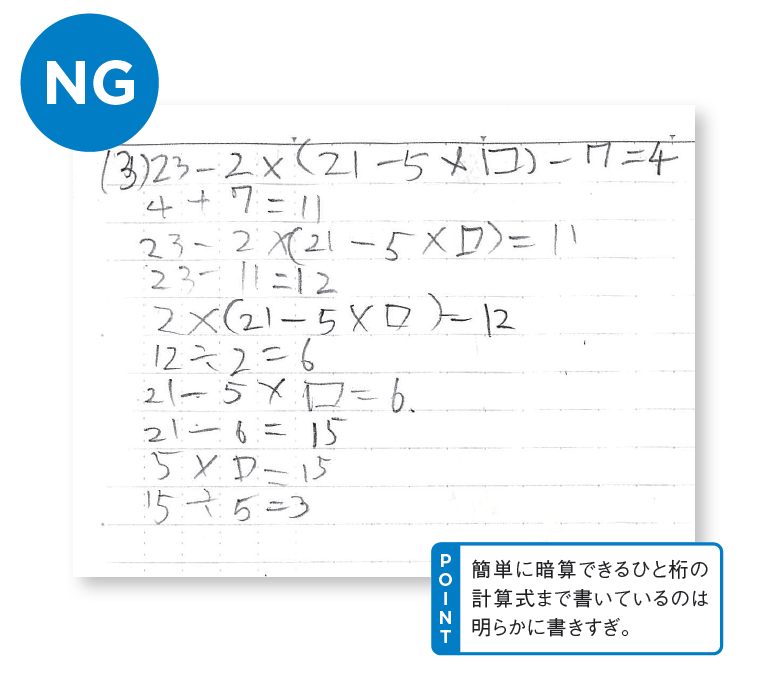 NG
(3)23-2×(21-5×□)-7=4
4+7=11
23-2×(21-5×□)=11
23-11=12
2×(21-5×□)=12
12÷2=6
21-5×□=6.
21-6=15
5×□=15
15÷5=3
POINT
簡単に暗算できるひと桁の
計算式まで書いているのは
明らかに書きすぎ。